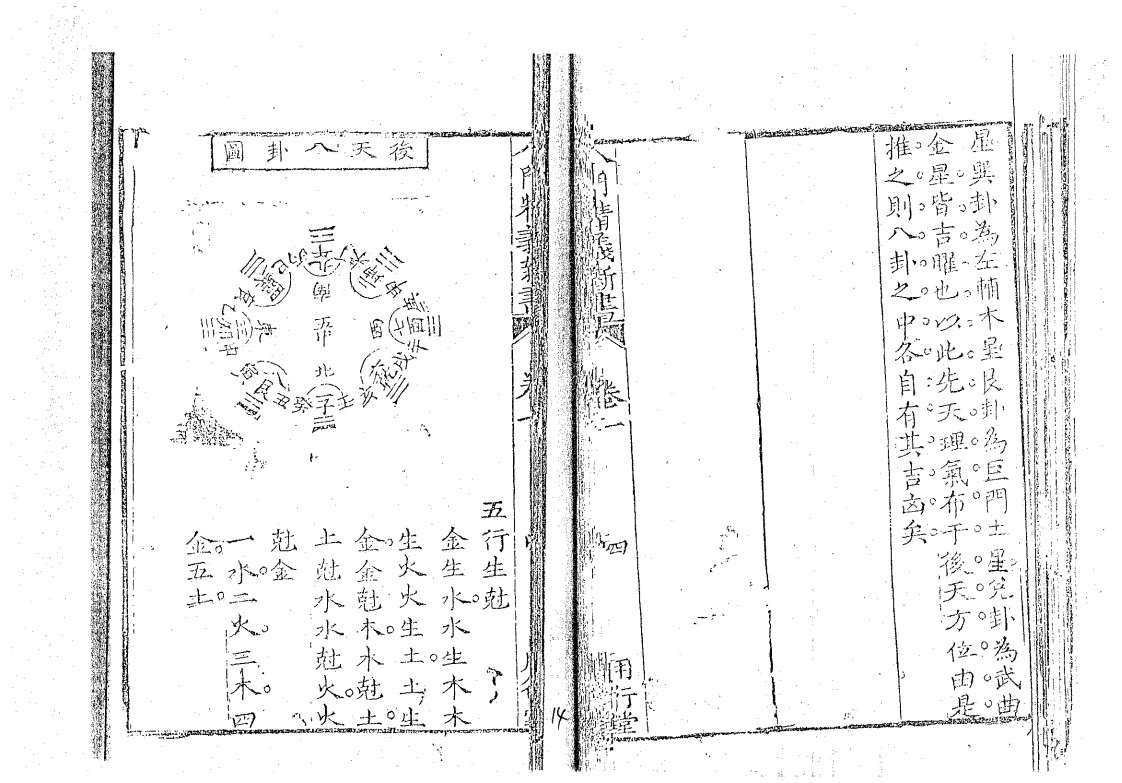 星巽卦為左輔木星艮卦為巨門土星兌卦為武曲
金星皆吉曜也以此先天理氣布于後天方位由是
推之則八卦之中各自有其吉凶矣
八門精義新書
卷一
四
用行堂
14
後天八卦圖
南
北
東
西
五行生尅
金生水水生木木
生火火生土土生
金金尅木木尅土
土尅水水尅火火
尅金
一水二火三木四
金五土